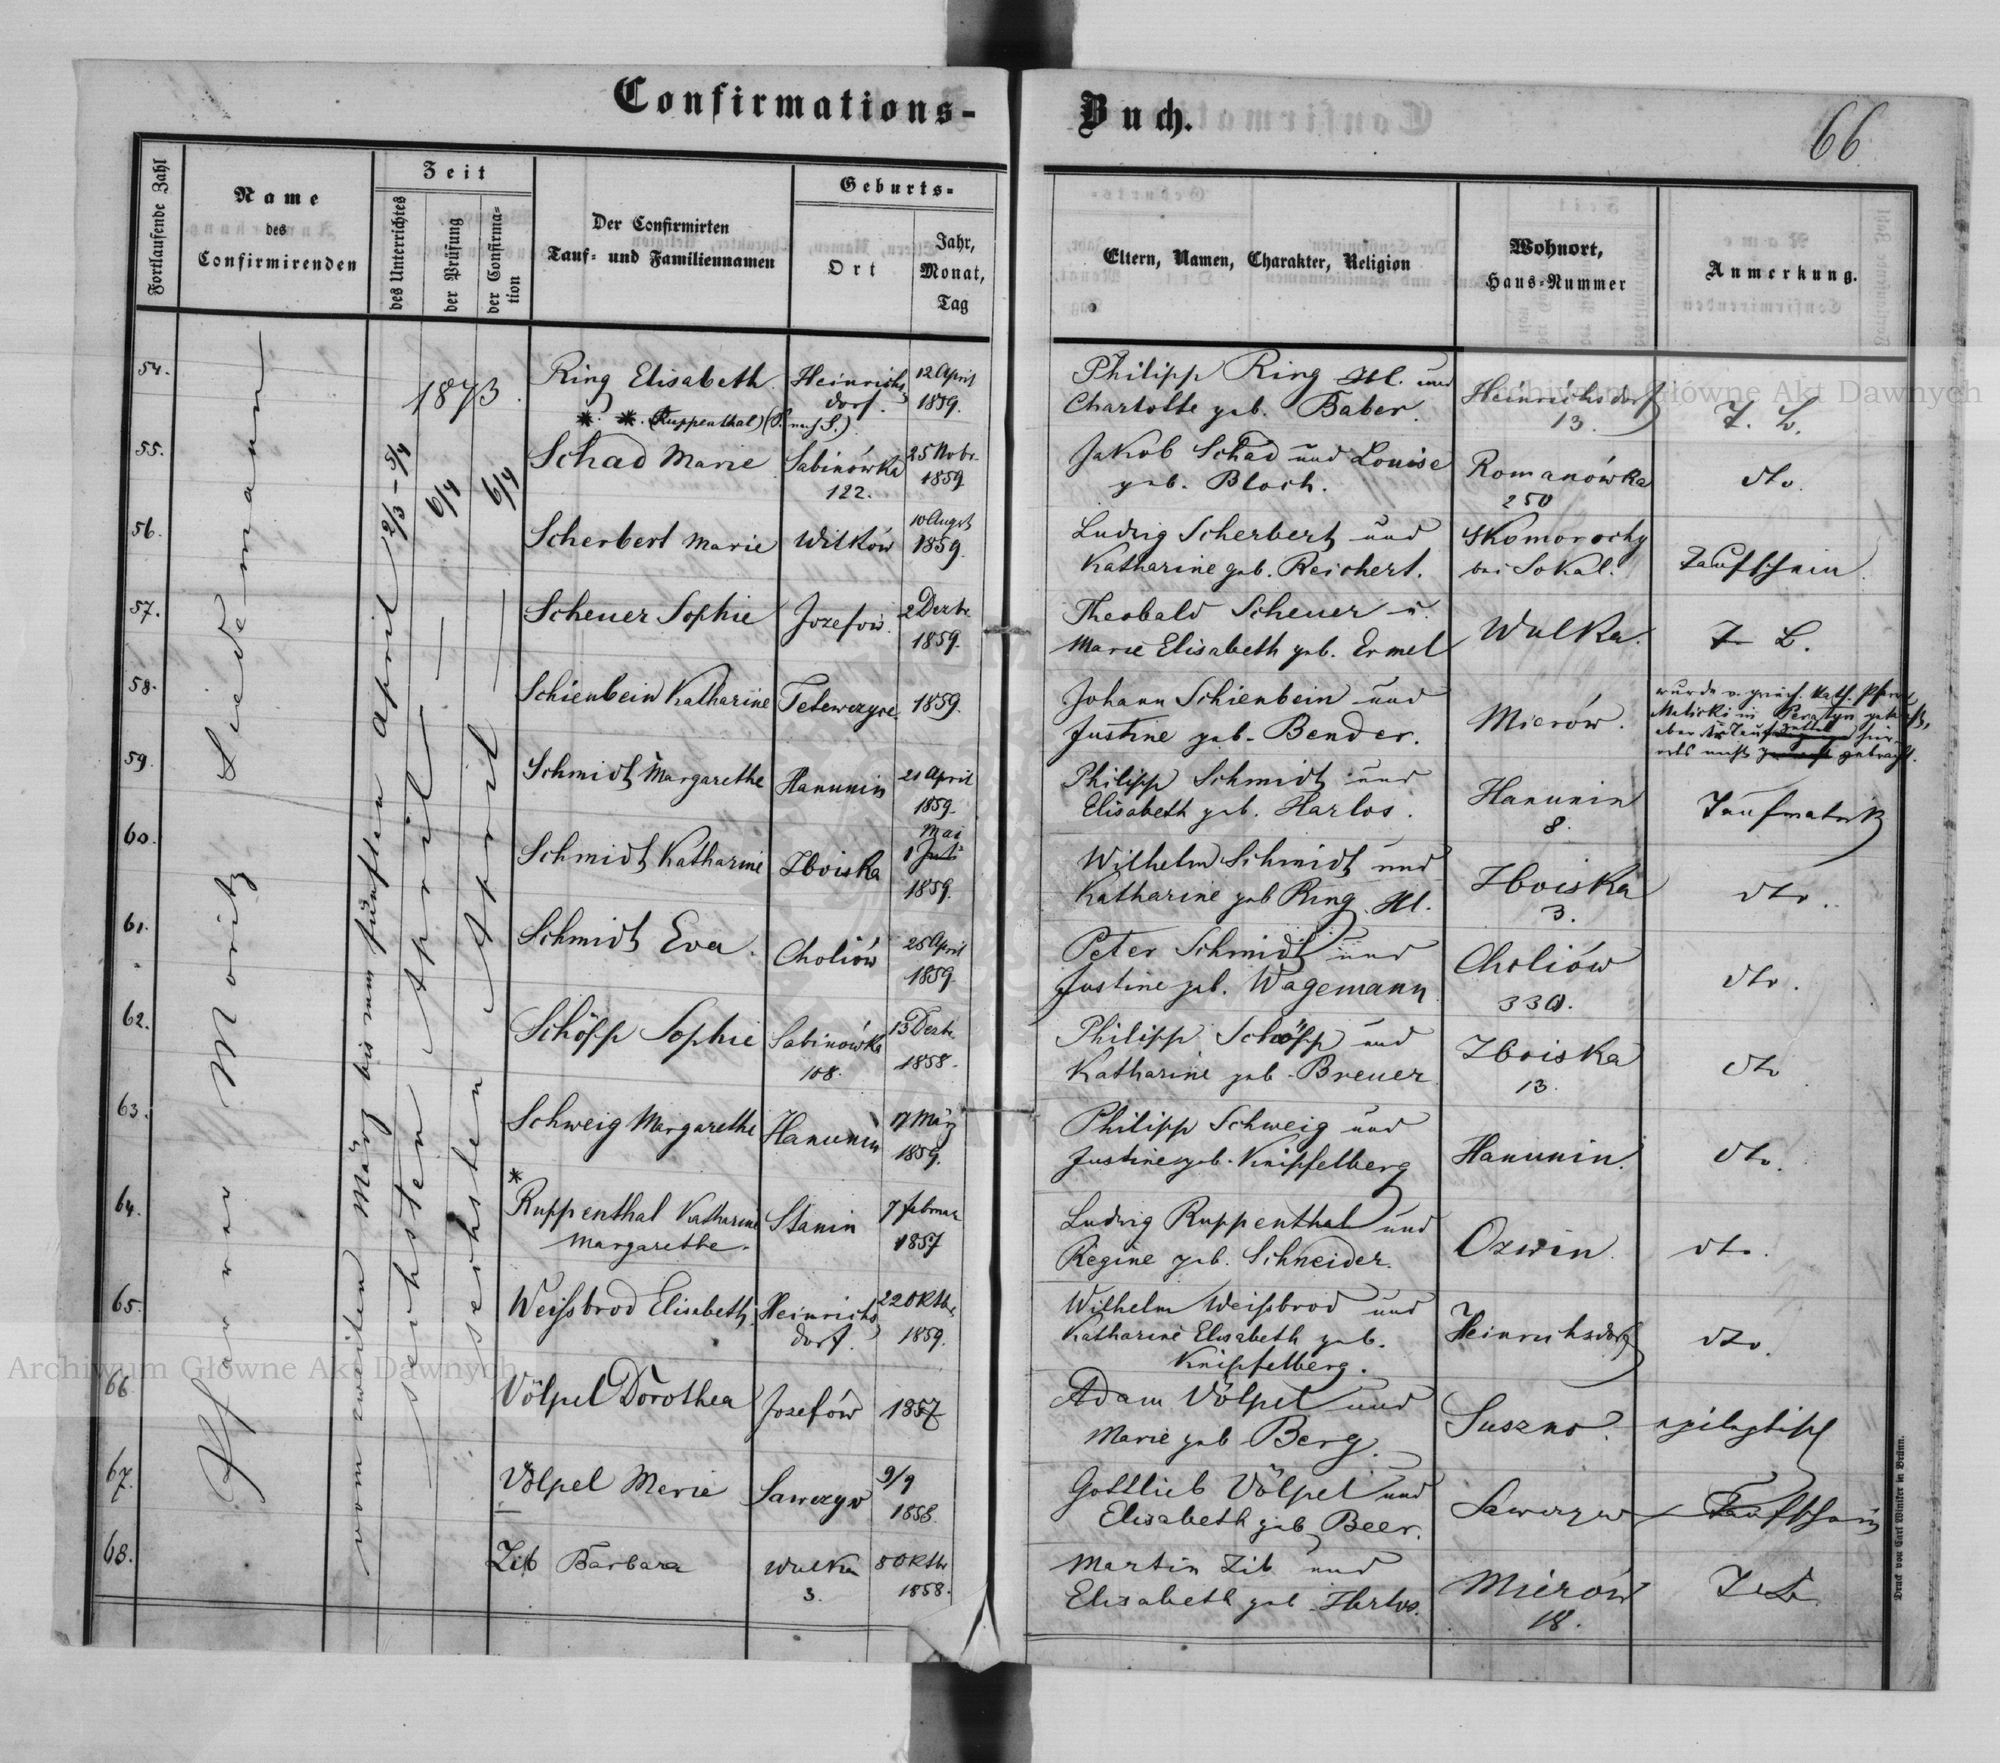 Confirmations-
Buch.
66
Fortlaufende Zahl
Name
des
Confirmirenden
Zeit
des Unterrichtes
der Prüfung
der Confirma-
tion
Der Confirmirten
Tauf- und Familiennamen
Geburts-
Ort
Jahr,
Monat,
Tag
Eltern, Namen, Charakter, Religion
Wohnort,
Haus-Nummer
Anmerkung.
Pfarrer Moritz Siedemann
1873.
12/3 - 5/4
6/4
6/4
vom zweiten März bis zum fünften April
sechsten April
sechsten April
54.
Ring Elisabeth
Heinrichs
dorf.
12 April
1859.
Philipp Ring HI. und
Charlotte geb. Baber.
Heinrichsdorf
13.
T. S.
*. *. (Ruppenthal) (S. nach S.)
55.
Schad Marie
Sabinówka
122.
25 Nobr.
1859
Jakob Schad und Louise
geb. Bloch.
Romanówka
250
dto.
56.
Scherbert Marie
Witków
10 Augst
1859.
Ludwig Scherbert und
Katharine geb. Reichert.
Skomorochy
bei Sokal.
Taufschein.
57.
Scheuer Sophie
Jozefów.
2 Dezbr
1859.
Theobald Scheuer u.
Marie Elisabeth geb. Ermel
Wulka.
T. S.
58.
Schienbein Katharine
Tetewczyce
1859.
Johann Schienbein und
Justine geb. Bender.
Mierów.
wurde v. griech. kath. Pfarrer
Malicki in Peratyn getauft,
59.
Schmidt Margarethe
Hanunin
21 April
1859.
Philipp Schmidt und
Elisabeth geb. Harlos.
Hanunin
8.
Taufmatrik
60.
Schmidt Katharine
Zboiska
Mai
1 Juli
1859.
Wilhelm Schmidt und
Katharine geb Ring. HI.
Zboiska
3.
dto.
61.
Schmidt Eva.
Choliów
25 April
1859.
Peter Schmidt und
Justine geb. Wagemann
Choliów
330.
dto.
62.
Schöpp Sophie
Sabinówka
108.
13 Dezbr
1858.
Philipp Schöpp und
Katharine geb. Breuer
Zboiska
13.
dto
63.
Schweig Margarethe
Hanunin
17 März
1859.
Philipp Schweig und
Justine geb. Knipfelberg
Hanunin.
dto.
*
64.
Ruppenthal Katharine
Margarethe.
Stanin
7 Februar
1857
Ludwig Ruppenthal und
Regine geb. Schneider.
Ozwin.
dto.
65.
Weißbrod Elisabeth
Heinrichs
dorf.
22 Oktbr
1859.
Wilhelm Weißbrod und
Katharine Elisabeth geb.
Knipfelberg.
Heinrichsdorf
dto.
66
Völpel Dorothea
Jozefów
1857
Adam Völpel und
Marie geb Berg.
Suszno.
67.
Völpel Marie
Sawczyn
9/9
1858.
Gottlieb Völpel und
Elisabeth geb Beer.
Sawczyn
Taufschein
68.
Zib Barbara
Wulka
3.
5 Oktbr
1858.
Martin Zib und
Elisabeth geb. Harlos.
Mierów
18.
T. S.
Druck von Carl Winiker in Brünn.
Archiwum Główne Akt Dawnych
Archiwum Główne Akt Dawnych